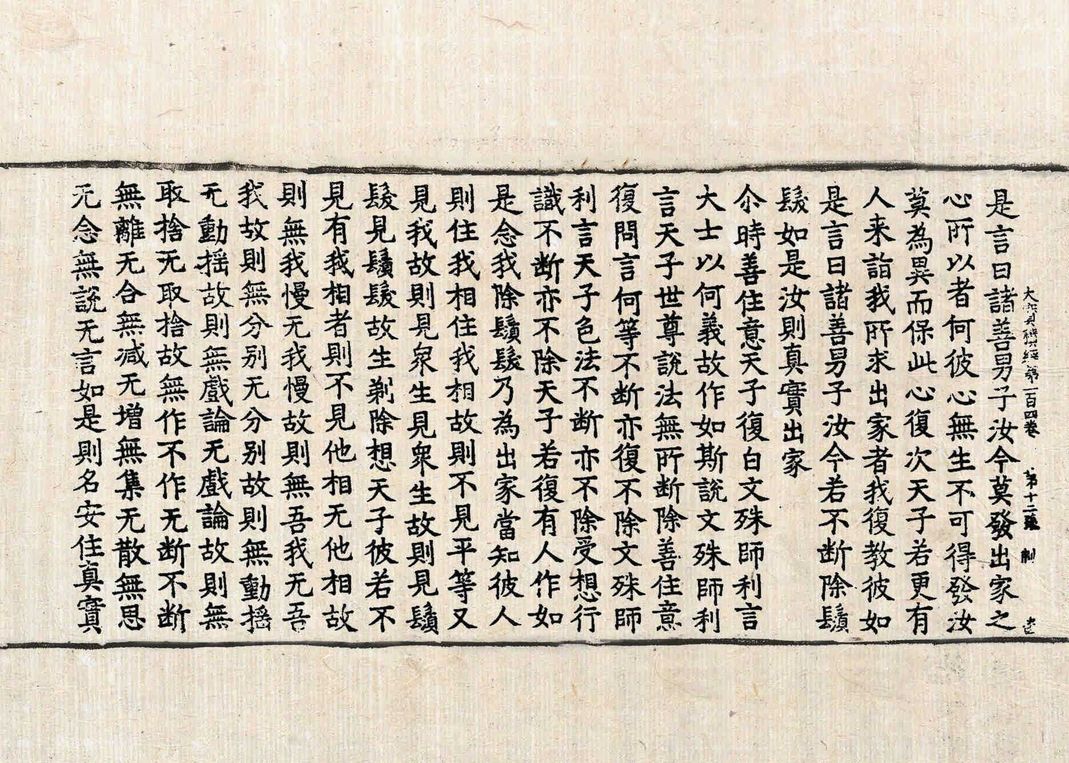 大寶積經第一百四卷 第十二張 制
是言曰諸善男子汝今莫發出家之
心所以者何彼心無生不可得發汝
莫為異而保此心復次天子若更有
人来詣我所求出家者我復教彼如
是言曰諸善男子汝今若不断除鬚
髮如是汝則真實出家
尒時善住意天子復白文殊師利言
大士以何義故作如斯說文殊師利
言天子世尊說法無所断除善住意
復問言何等不断亦復不除文殊師
利言天子色法不断亦不除受想行
識不断亦不除天子若復有人作如
是念我除鬚髮乃為出家當知彼人
則住我相住我相故則不見平等又
見我故則見衆生見衆生故則見鬚
髮見鬚髮故生剃除想天子彼若不
見有我相者則不見他相无他相故
則無我慢无我慢故則無吾我无吾
我故則無分别无分别故則無動搖
无動搖故則無戲論无戲論故則無
取捨无取捨故無作不作无断不断
無離无合無減无增無集无散無思
无念無說无言如是則名安住真實